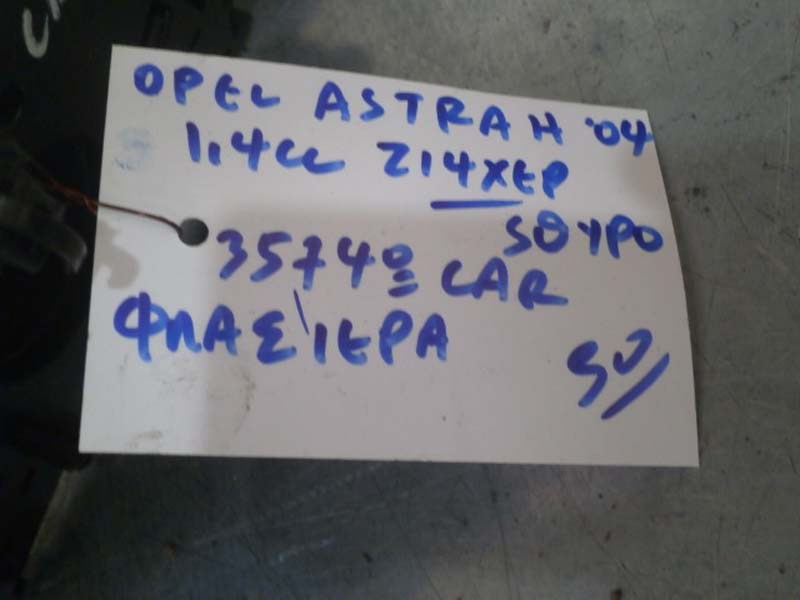 OPEL ASTRA H '04
1,4cc Z14XEP
5ΘΥΡΟ
3574º CAR
ΦΛΑΣΙΕΡΑ
50/